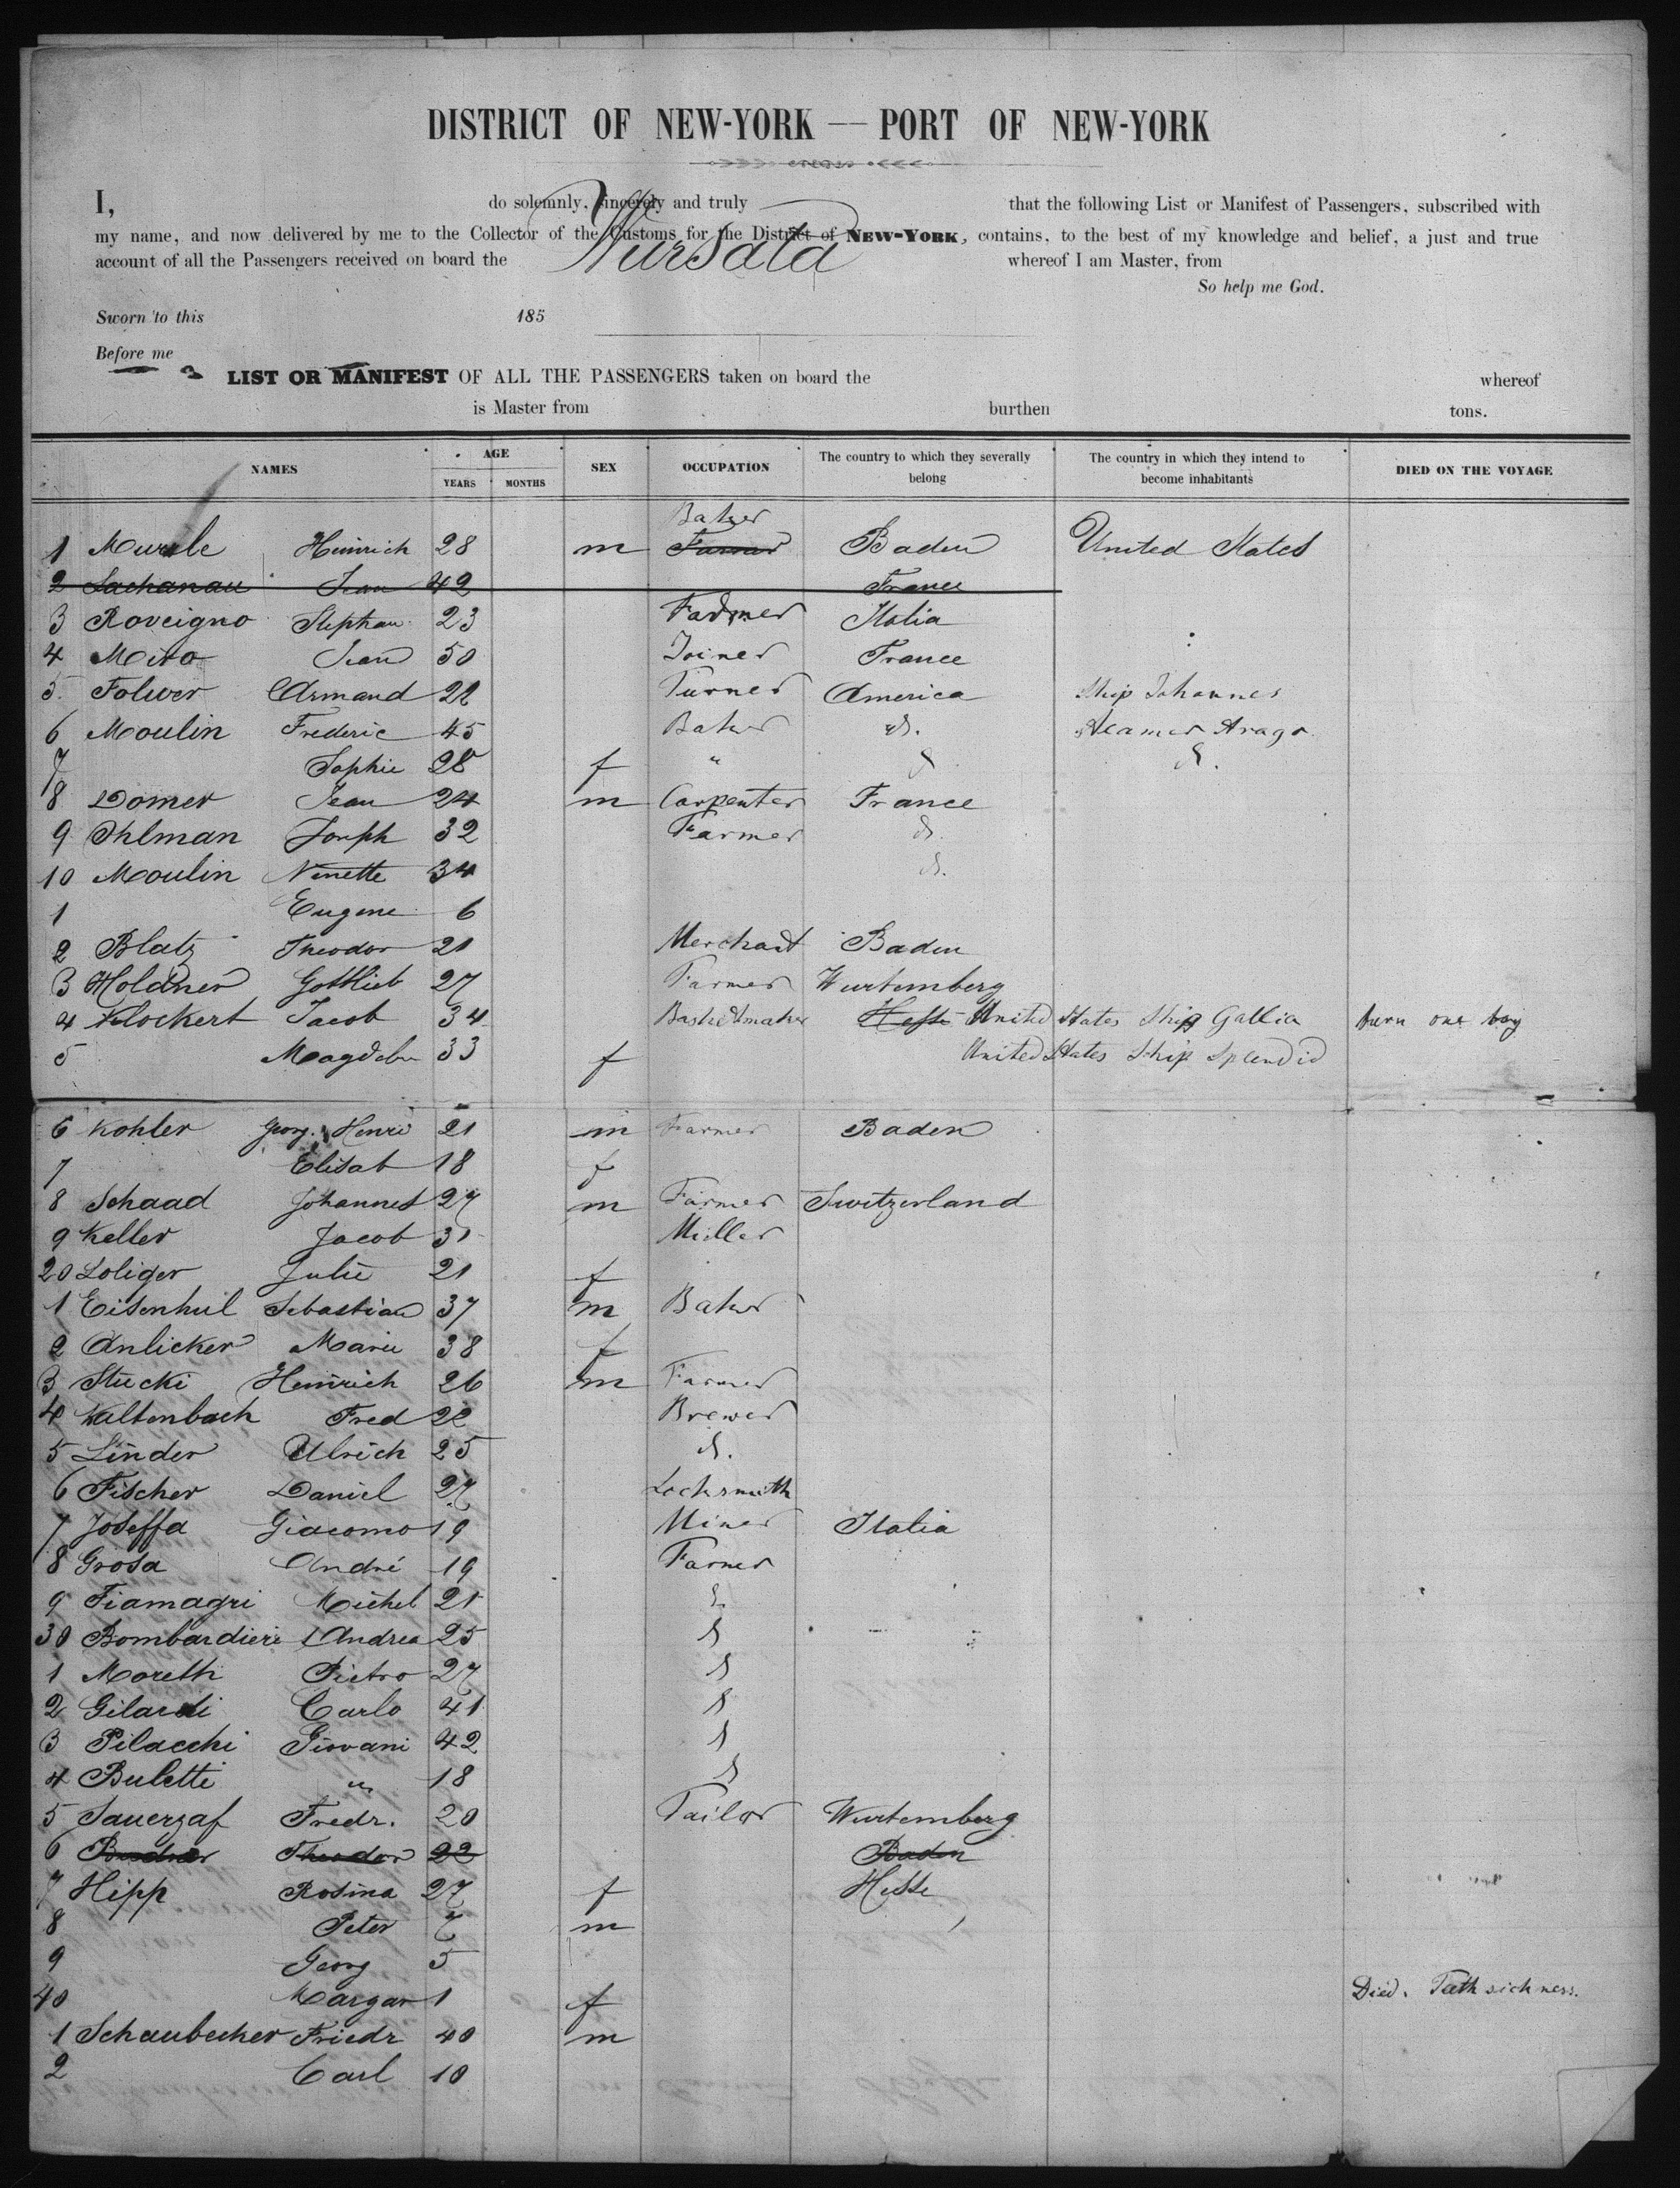 DISTRICT OF NEW-YORK — PORT OF NEW-YORK
I, do solemnly, sincerely and truly that the following List or Manifest of Passengers, subscribed with
my name, and now delivered by me to the Collector of the Customs for the District of NEW-YORK, contains, to the best of my knowledge and belief, a just and true
account of all the Passengers received on board the Wursata whereof I am Master, from
So help me God.
Sworn to this 185
Before me
LIST OR MANIFEST OF ALL THE PASSENGERS taken on board the whereof
is Master from burthen tons.
NAMES AGE YEARS MONTHS SEX OCCUPATION The country to which they severally belong The country in which they intend to become inhabitants DIED ON THE VOYAGE
Baker
1 Heinrich 28 m Farmer Baden United States
2 Lachanau Jean 42 France
3 Roveigno Stephan 23 Farmer Italia
4 Mito Jean 50 Joiner France
5 Folwer Armand 22 Turner America Ship Johannes
6 Moulin Frederic 45 Baker d. Steamer Arago
7 Sophie 28 f " d d.
8 Domer Jean 24 m Carpenter France
9 Ihlman Joseph 32 Farmer d.
10 Moulin Ninette 34 d.
1 Eugene 6
2 Blatz Theodor 21 Merchant Baden
3 Holdner Gottlieb 27 Farmer Wurtemberg
4 Klockert Jacob 34 Basketmaker Hesse United States Ship Gallia burn one boy
5 Magdelen 33 f United States Ship Splendid
6 Kohler Georg. Henri 21 m Farmer Baden
7 Elisab 18 f
8 Schaad Johannes 27 m Farmer Switzerland
9 Keller Jacob 31 Miller
20 Loliger Julie 21 f
1 Eisenhul Sebastian 37 m Baker
2 Anlicker Marie 38 f
3 Stucki Heinrich 26 m Farmer
4 Kaltenbach Fred 22 Brewer
5 Linder Ulrich 25 d.
6 Fischer Daniel 27 Locksmith
7 Joseffa Giacomo 19 Miner Italia
8 Grosa André 19 Farmer
9 Fiamagri Michel 21 d.
30 Bombardieri Andrea 25 d
1 Moretti Pietro 27 d
2 Gilardi Carlo 41 d
3 Pilacchi Giovani 42 d
4 Buletti " 18 d
5 Sauerzaf Fredr. 20 Tailor Wurtemberg
6 Theodor 22 Baden
7 Hipp Rosina 27 f Hesse
8 Peter 7 m
9 Georg 5
40 Margar 1 f Died. Teeth sickness.
1 Schaubecker Friedr 40 m
2 Carl 10